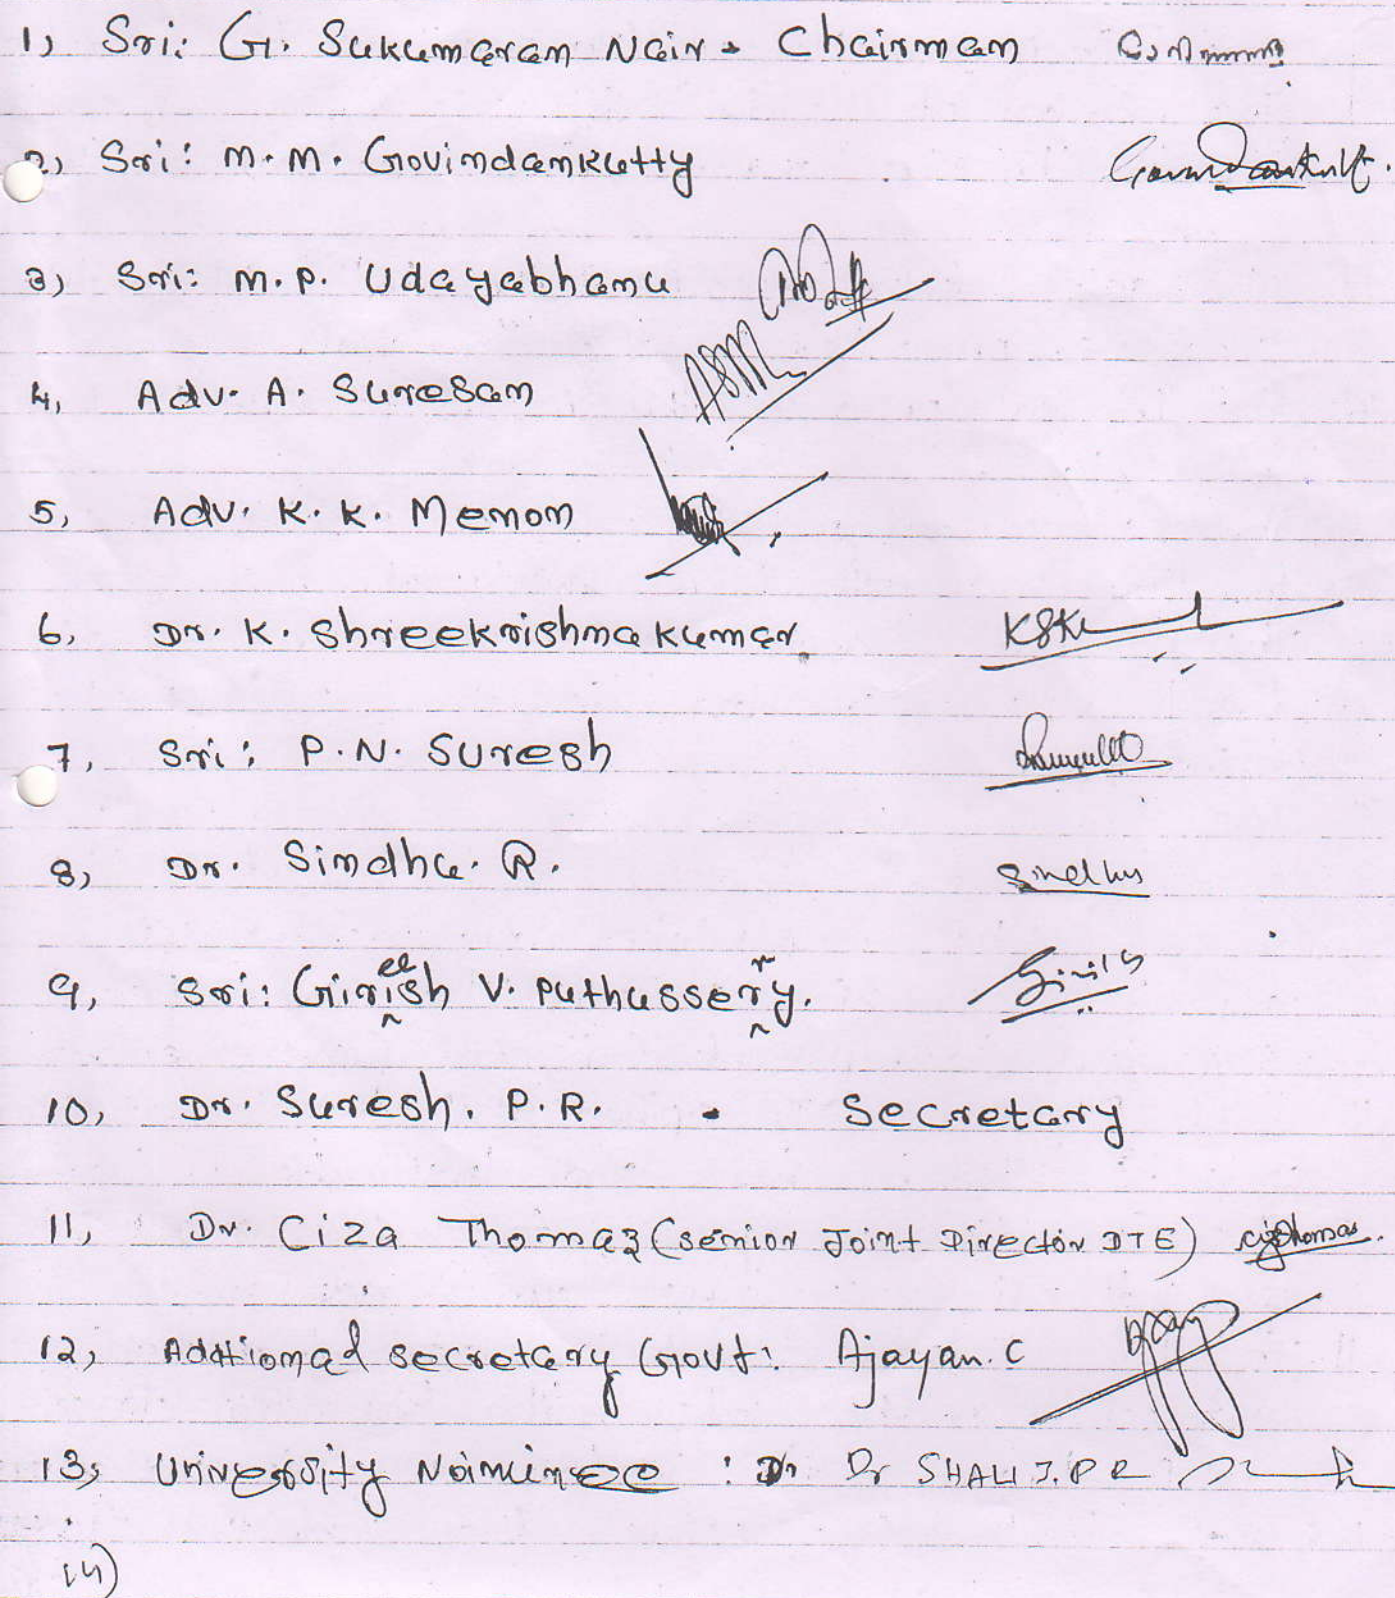 1) Sri: G. Sukumaran Nair - Chairman
2) Sri: M.M. Govindankutty Govindankutty.
3) Sri: M.P. Udayabhanu
4, Adv. A. Suresan
5, Adv. K.K. Menon
6, Dr. K. Shreekrishnakumar.
7, Sri: P.N. Suresh
8) Dr. Sindhu. R. Sindhu
9, Sri: Gireesh V. Puthusserry.
10, Dr. Suresh. P.R. - Secretary
11, Dr. Ciza Thomaz (Senior Joint Director DTE) cizathomas.
12, Addtional Secretary Govt: Ajayan. C
13, University Nominee : Dr Dr SHALIJ. P R
14)